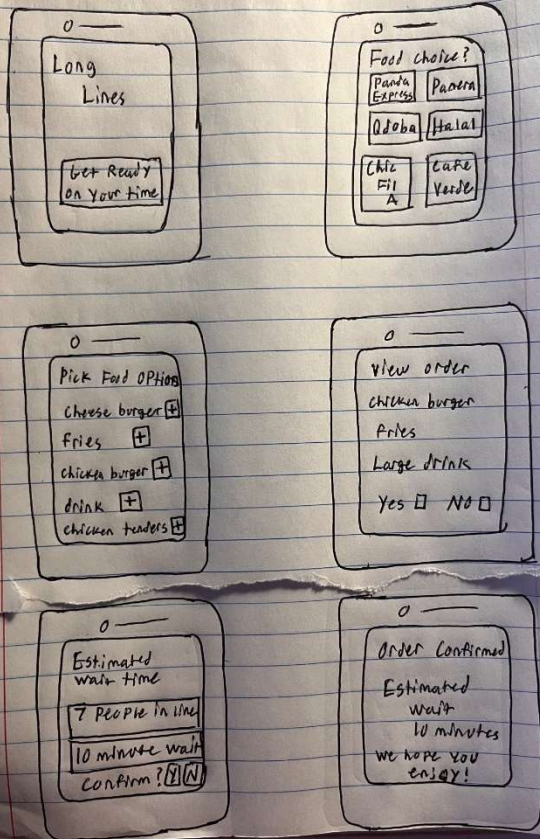 Long
Lines
Get Ready
on Your time
Food choice?
Panda
Express
Panera
Qdoba
Halal
Chic
Fil
A
Cafe
Verde
Pick Food Option
cheese burger +
fries +
chicken burger +
drink +
chicken tenders +
View order
chicken burger
fries
Large drink
Yes No
Estimated
wait time
7 People in line
10 minute wait
Confirm? Y N
Order Confirmed
Estimated
wait
10 minutes
we hope you
enjoy!